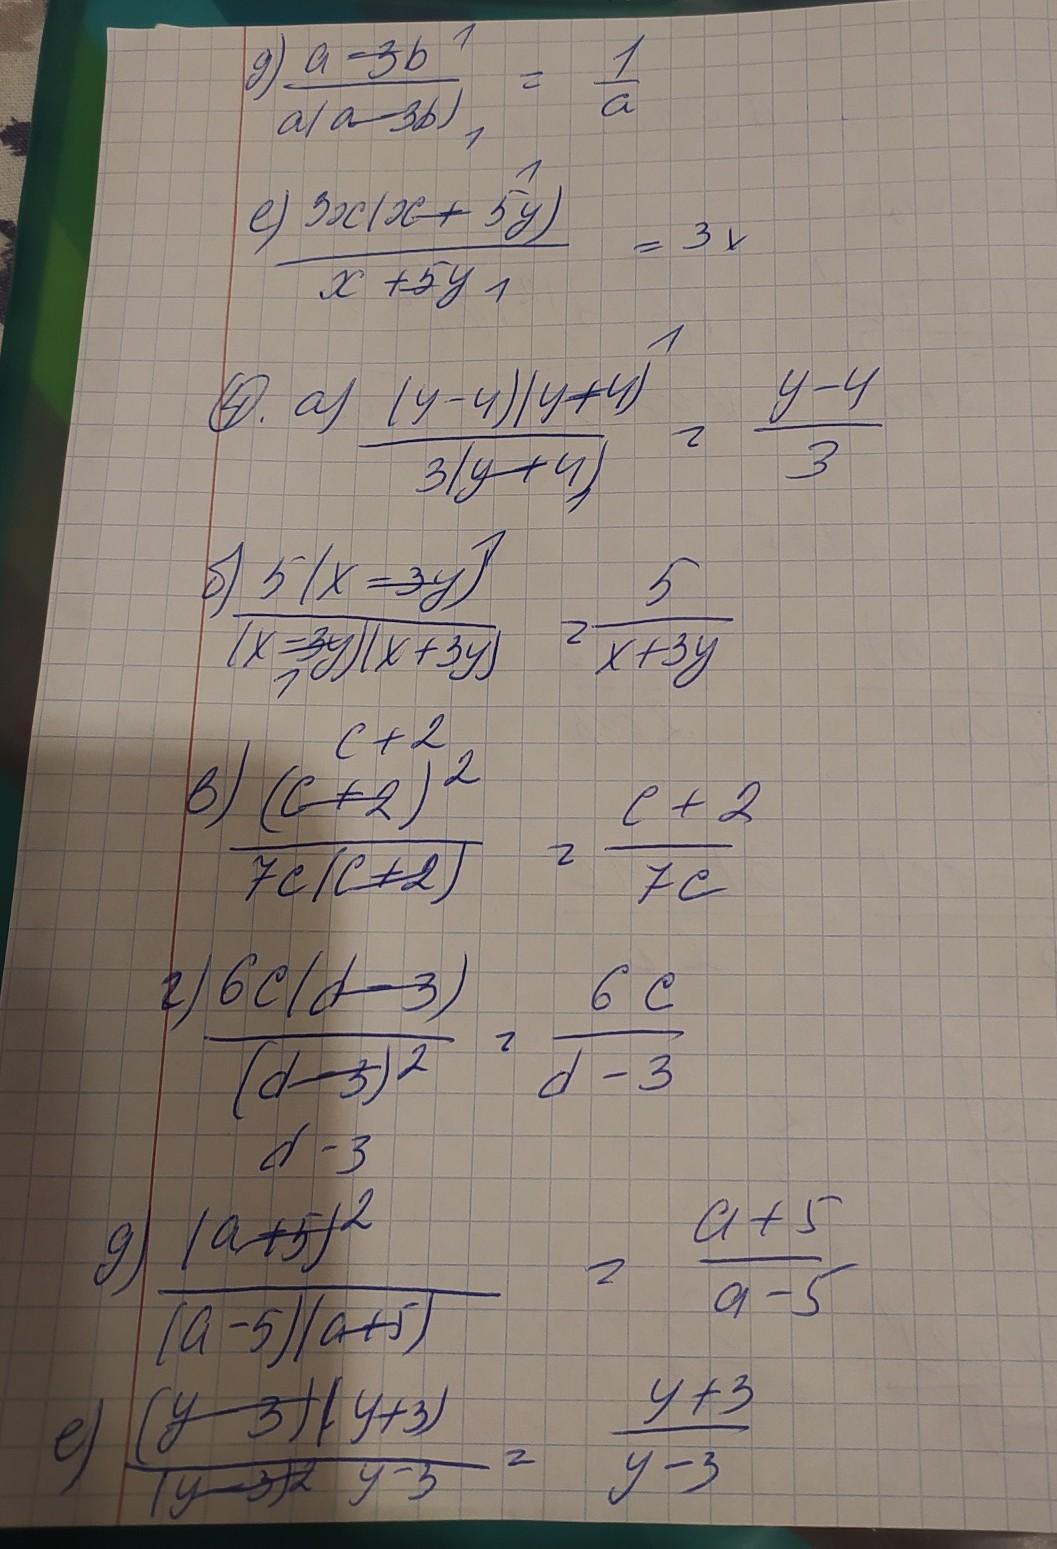 д) a-3b 1 / a(a-3b) 1 = 1/a
е) 3x(x+5y) 1 / x+5y 1 = 3x
④. а) (y-4)(y+4) 1 / 3(y+4) 1 = y-4 / 3
б) 5(x-3y) 1 / (x-3y)(x+3y) 1 = 5 / x+3y
c+2
в) (c+2)² / 7c(c+2) = c+2 / 7c
г) 6c(d-3) / (d-3)² = 6c / d-3
d-3
д) (a+5)² / (a-5)(a+5) = a+5 / a-5
е) (y-3)(y+3) / (y-3)² y-3 = y+3 / y-3